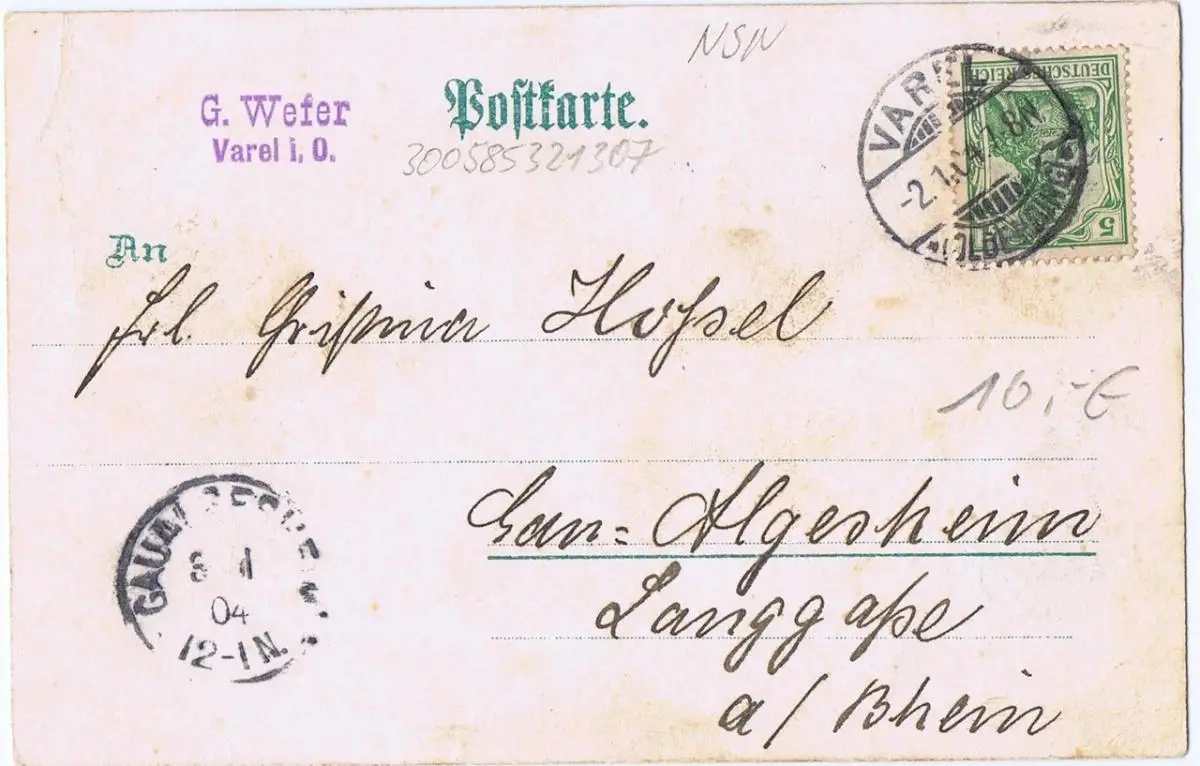 NSW
G. Wefer
Varel i. O.
Postkarte.
300585321307
VAREL
-2.1.04 7-8N.
*(OLDENBURG)*
DEUTSCHES REICH
5
An
Frl. Christina Hossel
10,-€
Gau=Algesheim
Langgaße
a/Rhein
GAUALGESHEIM
3 1
04
12-1N.